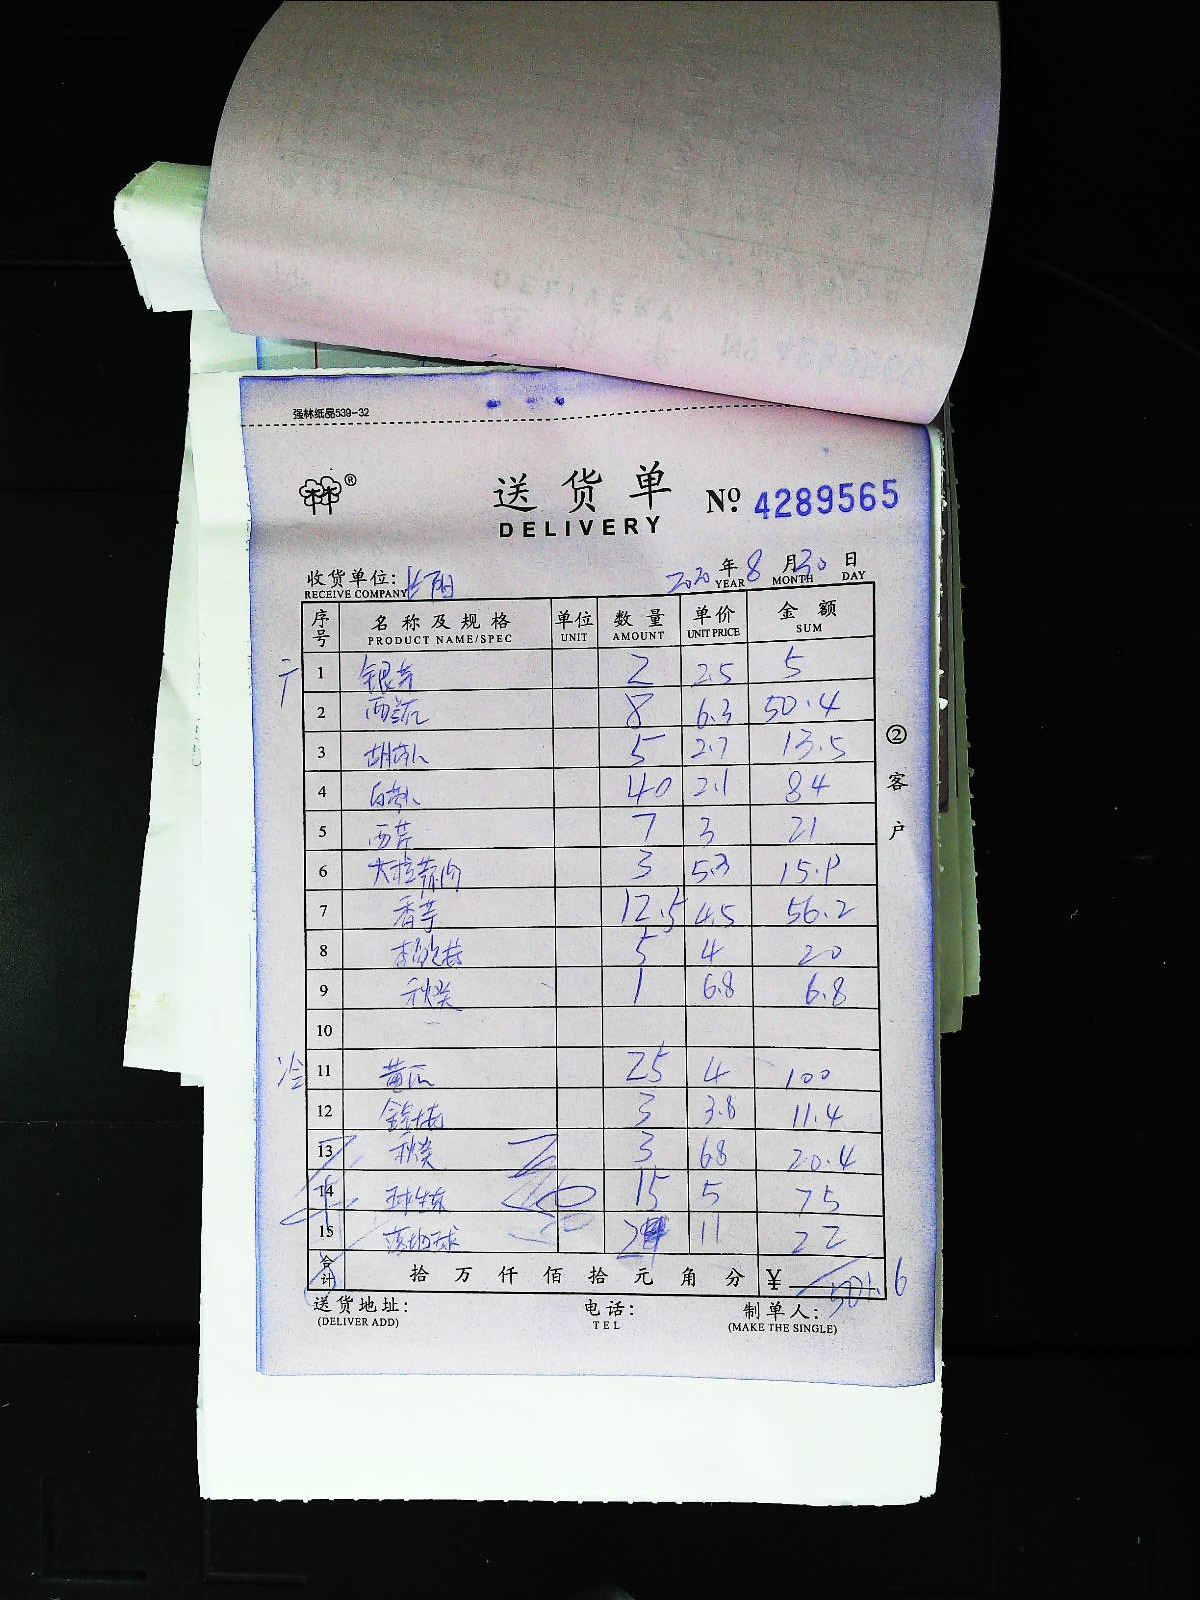 强林纸品539-32
林林®
送货单 Nº 4289565
DELIVERY
收货单位: 2020 年 8 月 30 日
RECEIVE COMPANY YEAR MONTH DAY
序号 名称及规格 单位 数量 单价 金额
PRODUCT NAME/SPEC UNIT AMOUNT UNIT PRICE SUM
1 银芽 2 2.5 5
2 西兰花 8 6.3 50.4
3 胡萝卜 5 2.7 13.5
4 白萝卜 40 2.1 84
5 西芹 7 3 21
6 大粒蒜肉 3 5.3 15.9
7 香芋 12.5 4.5 56.2
8 5 4 20
9 秋葵 1 6.8 6.8
10
冷 11 黄瓜 25 4 100
12 3 3.8 11.4
13 秋葵 3 6.8 20.4
14 15 5 75
15 2 11 22
合计 拾万仟佰拾元角分 ¥ 501.6
送货地址: 电话: 制单人:
(DELIVER ADD) TEL (MAKE THE SINGLE)
②客户